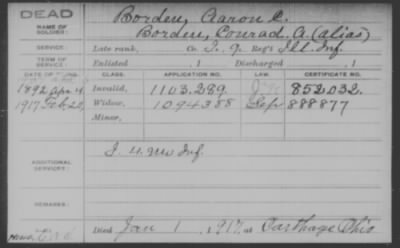 DEAD
NAME OF SOLDIER: Borden, Aaron C.
Borden, Conrad. A. (alias)
SERVICE: Late rank, Co. I, 9 Reg't Ill. Inf.
TERM OF SERVICE: Enlisted , 1 Discharged , 1
DATE OF FILING. CLASS. APPLICATION NO. LAW. CERTIFICATE NO.
1892 Apr 4 Invalid, 1103.289. 852.032.
1917 Feb. 20, Widow, 1094388 888877
Minor,
ADDITIONAL SERVICES: I. 4 Inf.
REMARKS:
Died Jan 1, 1917, at Carthage Ohio